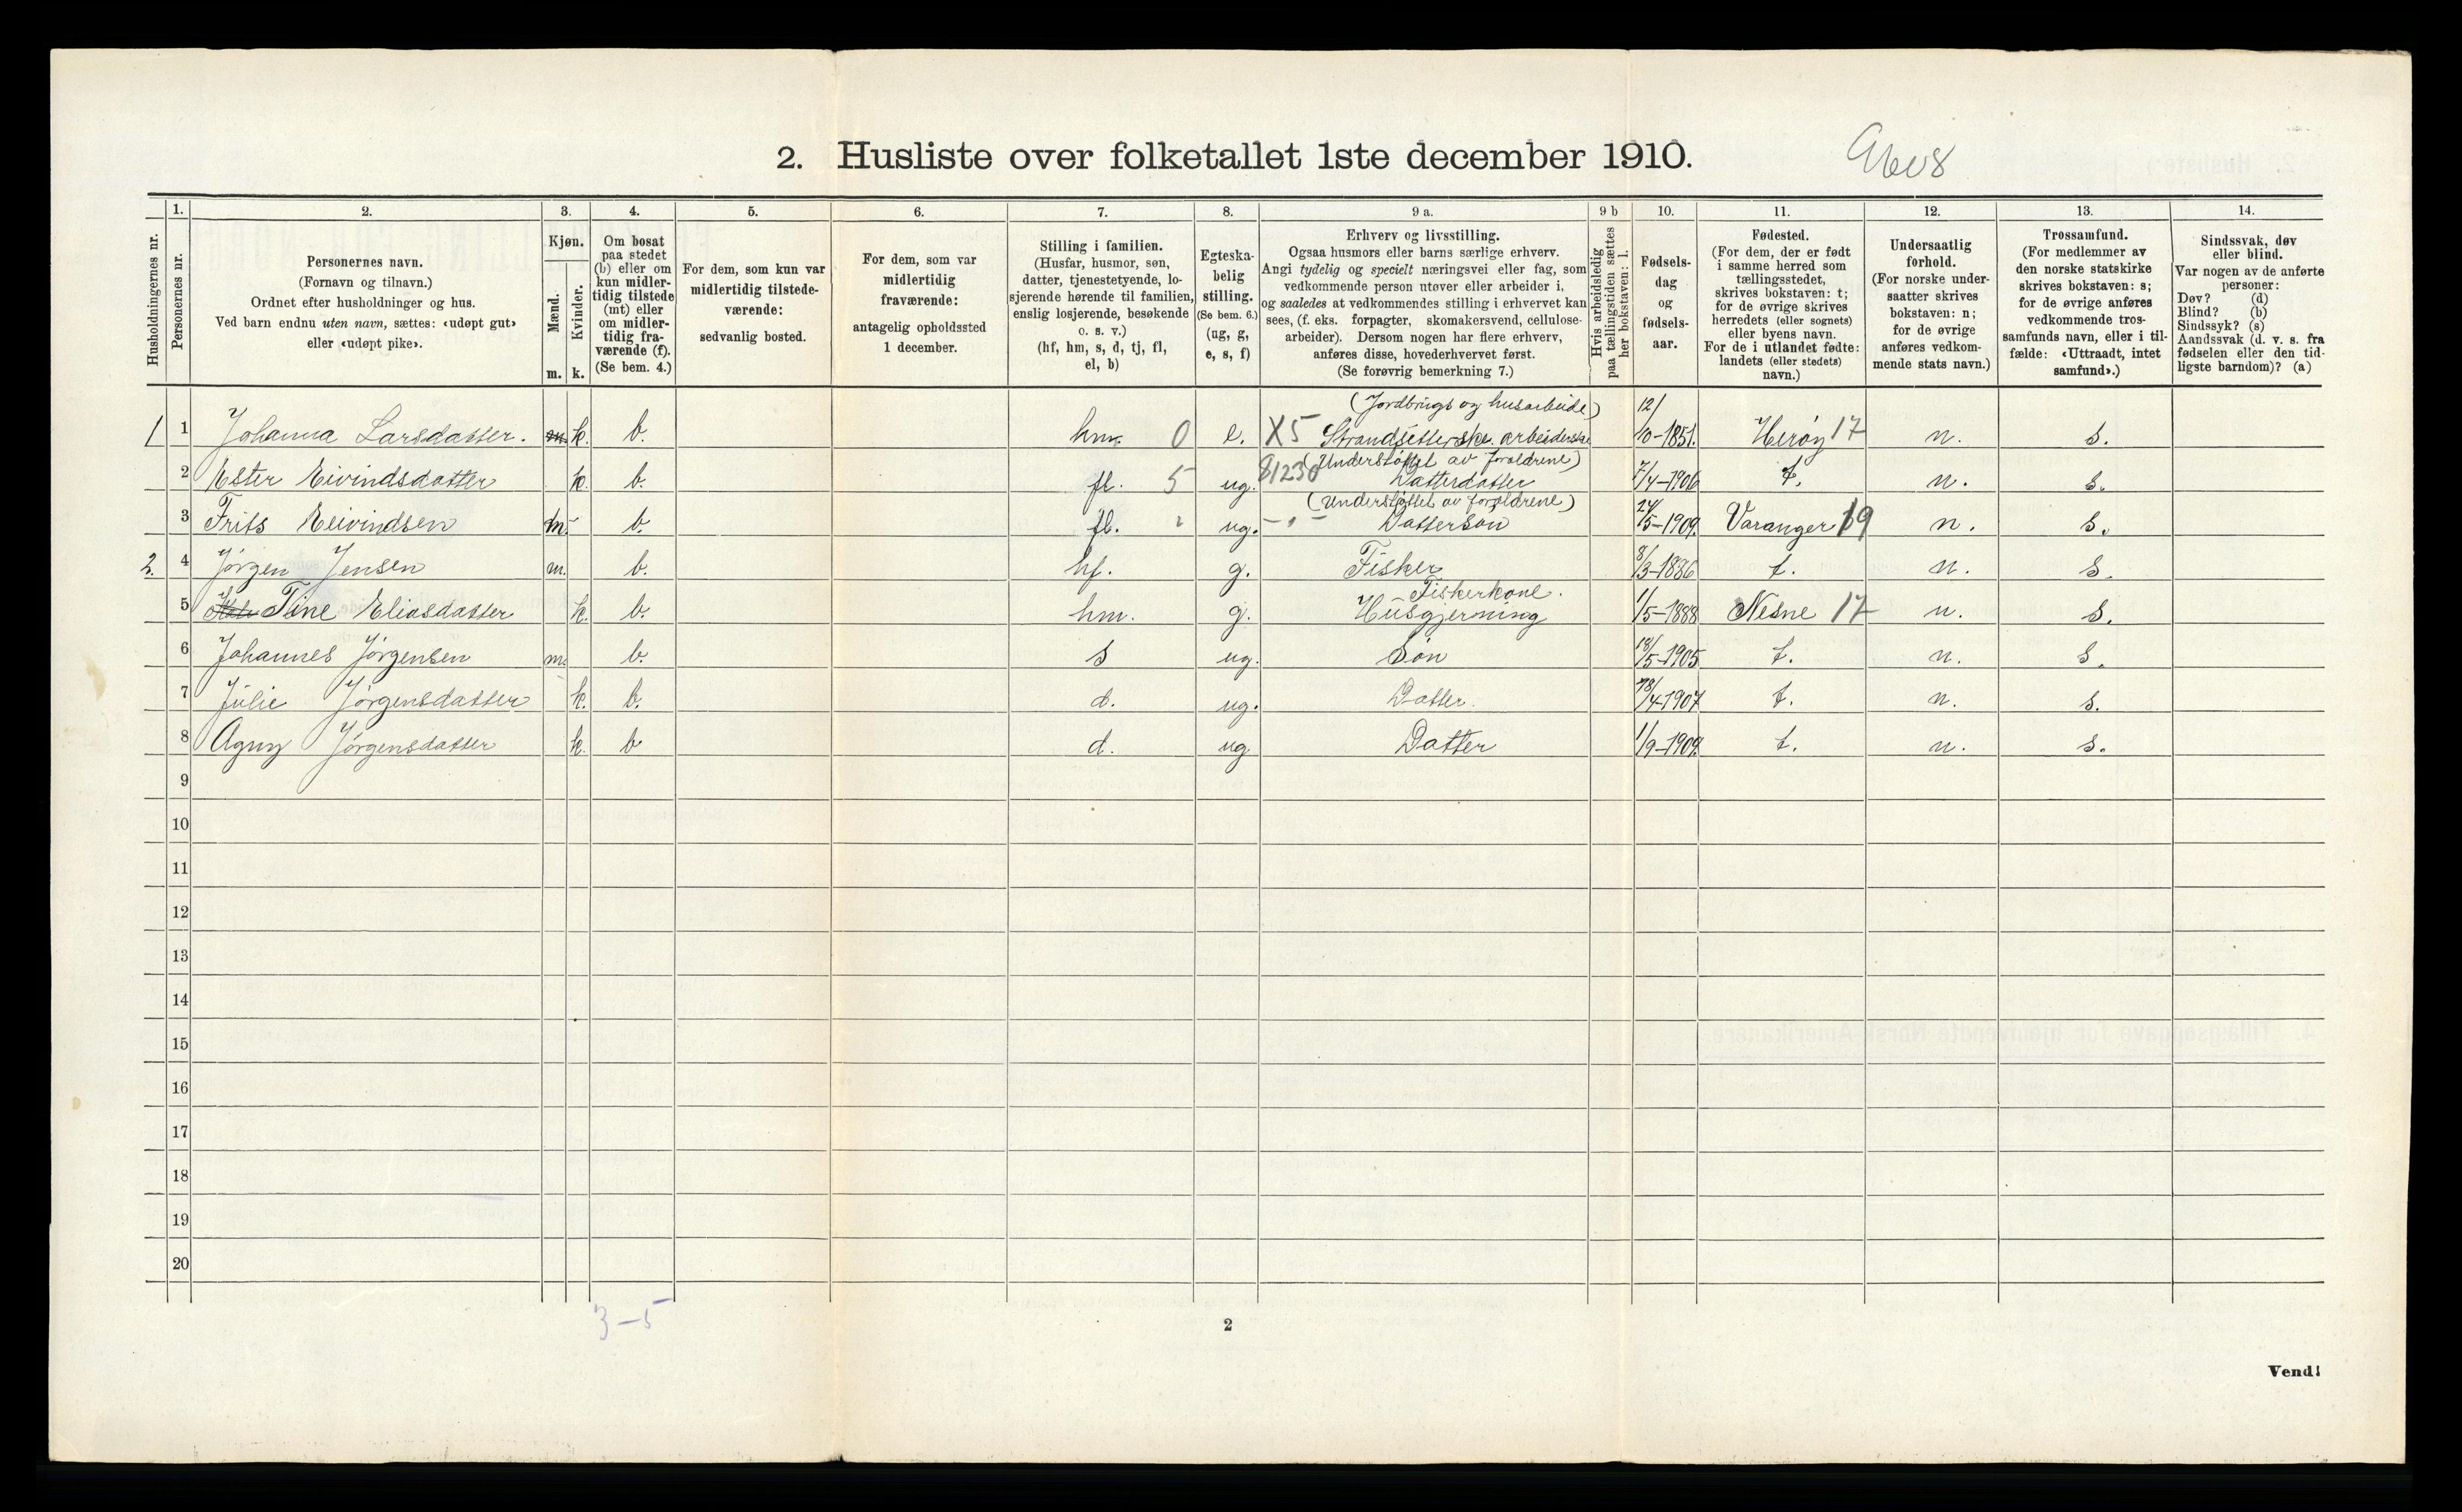 2. Husliste over folketallet 1ste december 1910.
1. 2. 3. 4. 5. 6. 7. 8. 9 a. 9 b 10. 11. 12. 13. 14.
Husholdningernes nr.
Personernes nr.
Personernes navn.
(Fornavn og tilnavn.)
Ordnet efter husholdninger og hus.
Ved barn endnu uten navn, sættes: «udøpt gut»
eller «udøpt pike».
Kjøn.
Mænd.
Kvinder.
m. k.
Om bosat
paa stedet
(b) eller om
kun midler-
tidig tilstede
(mt) eller
om midler-
tidig fra-
værende (f).
(Se bem. 4.)
For dem, som kun var
midlertidig tilstede-
værende:
sedvanlig bosted.
For dem, som var
midlertidig
fraværende:
antagelig opholdssted
1 december.
Stilling i familien.
(Husfar, husmor, søn,
datter, tjenestetyende, lo-
sjerende hørende til familien,
enslig losjerende, besøkende
o. s. v.)
(hf, hm, s, d, tj, fl,
el, b)
Egteska-
belig
stilling.
(Se bem. 6.)
(ug, g,
e, s, f)
Erhverv og livsstilling.
Ogsaa husmors eller barns særlige erhverv.
Angi tydelig og specielt næringsvei eller fag, som
vedkommende person utøver eller arbeider i,
og saaledes at vedkommendes stilling i erhvervet kan
sees, (f. eks. forpagter, skomakersvend, cellulose-
arbeider). Dersom nogen har flere erhverv,
anføres disse, hovederhvervet først.
(Se forøvrig bemerkning 7.)
Hvis arbeidsledig
paa tællingstiden sættes
her bokstaven: l.
Fødsels-
dag
og
fødsels-
aar.
Fødested.
(For dem, der er født
i samme herred som
tællingsstedet,
skrives bokstaven: t;
for de øvrige skrives
herredets (eller sognets)
eller byens navn.
For de i utlandet fødte:
landets (eller stedets)
navn.)
Undersaatlig
forhold.
(For norske under-
saatter skrives
bokstaven: n;
for de øvrige
anføres vedkom-
mende stats navn.)
Trossamfund.
(For medlemmer av
den norske statskirke
skrives bokstaven: s;
for de øvrige anføres
vedkommende tros-
samfunds navn, eller i til-
fælde: «Uttraadt, intet
samfund».)
Sindssvak, døv
eller blind.
Var nogen av de anførte
personer:
Døv? (d)
Blind? (b)
Sindssyk? (s)
Aandssvak (d. v. s. fra
fødselen eller den tid-
ligste barndom)? (a)
(Jordbrugs og husarbeide)
1 1 Johanna Larsdatter. m. k. b. hm. 0 e. X5 Strandsitterske. arbeiderske 12/10-1851. Herøy 17 n. s.
(Understøttet av foroldrene)
2 Ester Eivindsdatter k. b. fl. 5 ug. 81230 Datterdatter 7/4-1906 t. n. s.
(Understøttet av foroldrene)
3 Frits Eeivindsen m. b. fl. " ug. - " - Datterson 24/5-1909. Varanger 19 n. s.
2. 4 Jörgen Jensen m. b. hf. g. Fisker 8/3-1886 t. n. s.
Fiskerkone.
5 Tine Eliasdatter k. b. hm. g. Husgjerning 1/5-1888 Nesne 17 n. s.
6 Johannes Jörgensen m. b. s ug. Sön 18/5-1905 t. n. s.
7 Julie Jörgensdatter k. b. d. ug. Datter. 18/4-1907 t. n. s.
8 Agny Jörgensdatter k. b d. ug. Datter 1/9-1909. t. n. s.
9
10
11
12
13
14
15
16
17
18
19
20
3-5
2
Vend!